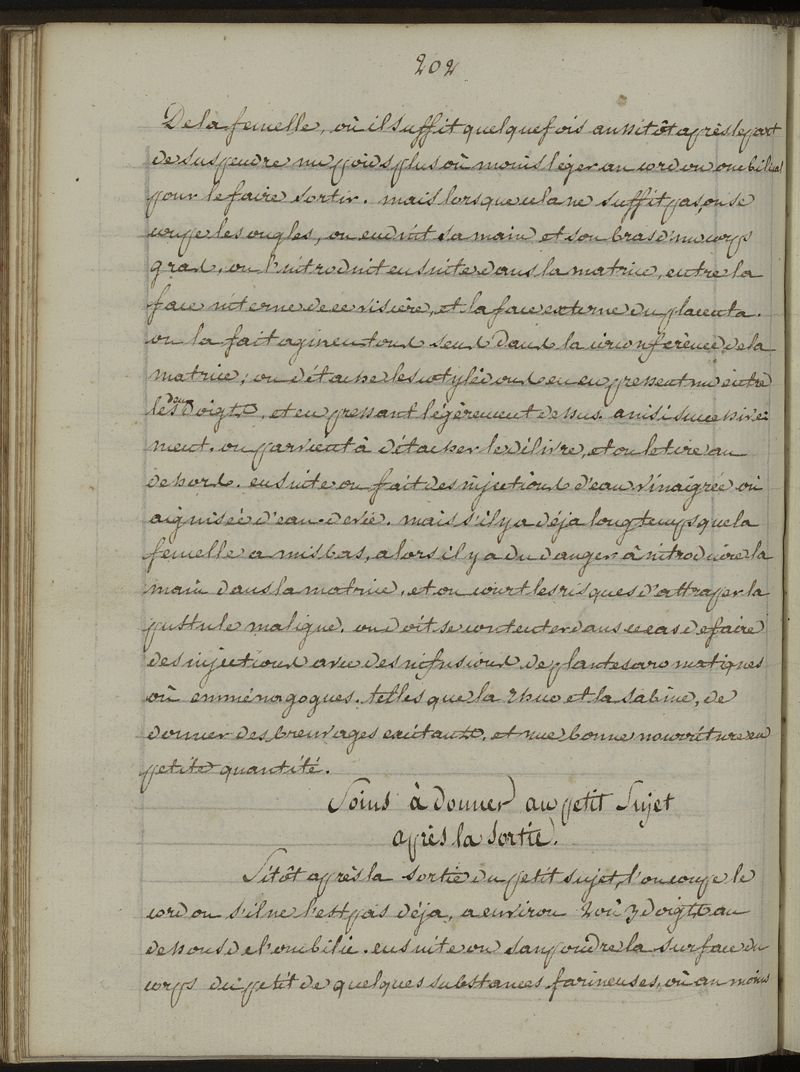 202
De la femelle, où il suffit quelquefois aussitôt après le part
de suspendre un poids plus où moins léger au cordon ombilical
pour le faire sortir. mais lorsque cela ne suffit pas, on se
coupe les ongles, on enduit sa main et son bras d'un corps
gras, on l'introduit ensuite dans la matrice, entre la
face interne de ce viscère, et la face externe du placenta.
on la fait agir en tous sens dans la circonférence de la
matrice; on détache les cotylédons en en pressant un entre
les deux doigts, et en pressant légèrement dessus. ainsi successive-
ment. on parvient à détacher le délivre, et on le tire au
dehors. ensuite on fait des injections d'eau vinaigrée où
aiguisée d'eau-de-vie. mais s'il y a déja longtemps que la
femelle a mis bas, alors il y a du danger à introduire la
main dans la matrice, et on court les risques d'attraper la
pustule maligne. on doit se contenter dans ce cas de faire
des injections avec des infusions de plantes aromatiques
où emménagogues. telles que la rhue et la sabine, de
donner des breuvages excitants, et une bonne nourriture en
petite quantité.
Soins à donner au petit Sujet
après la Sortie.
Sitôt après la sortie du petit sujet, l'on coupe le
cordon s'il ne l'est pas déja, a environ 2 où 3 doigts au
dehors de l'ombilic. ensuite on saupoudre la surface du
corps du petit de quelques substances farineuses, où au moins